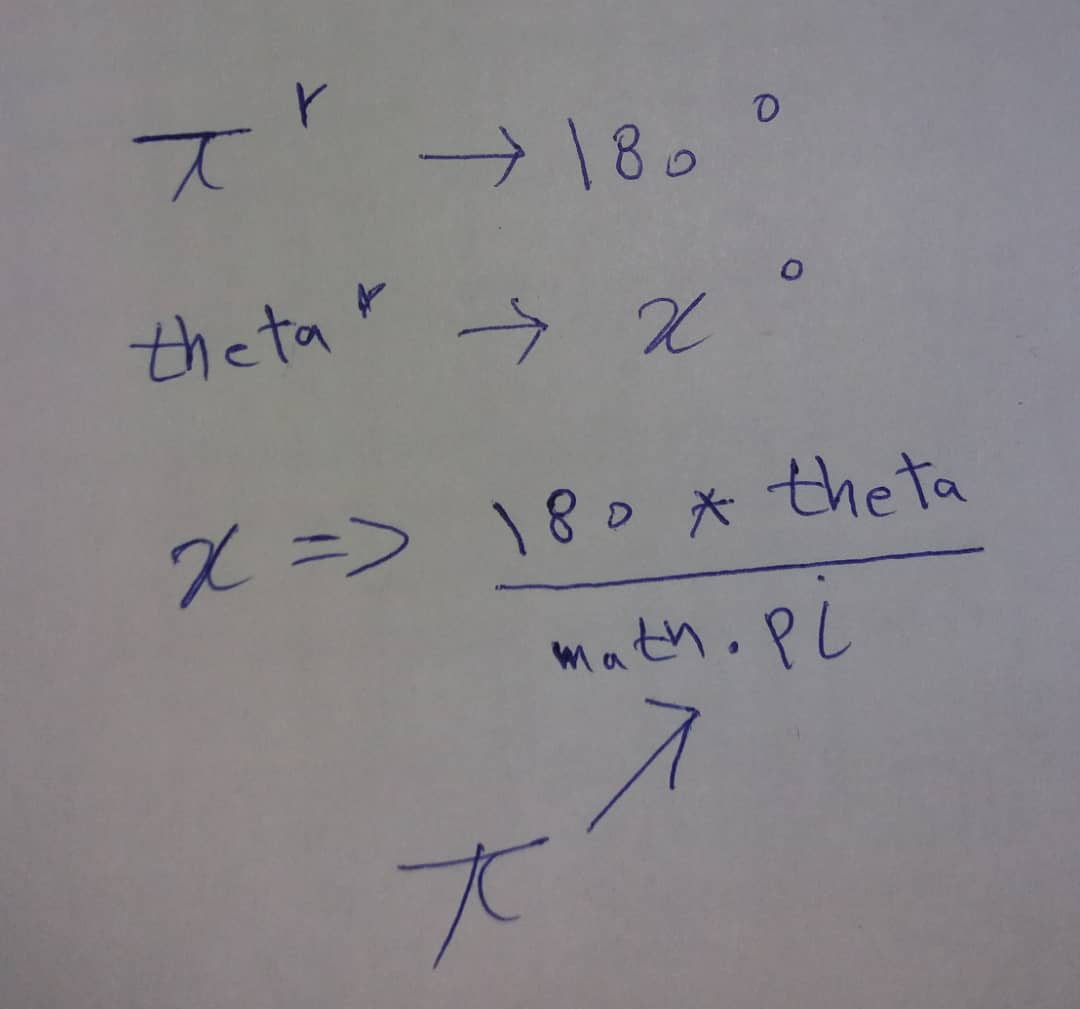 π^r → 180°
theta^r → x°
x => 180 * theta
math.pi
π